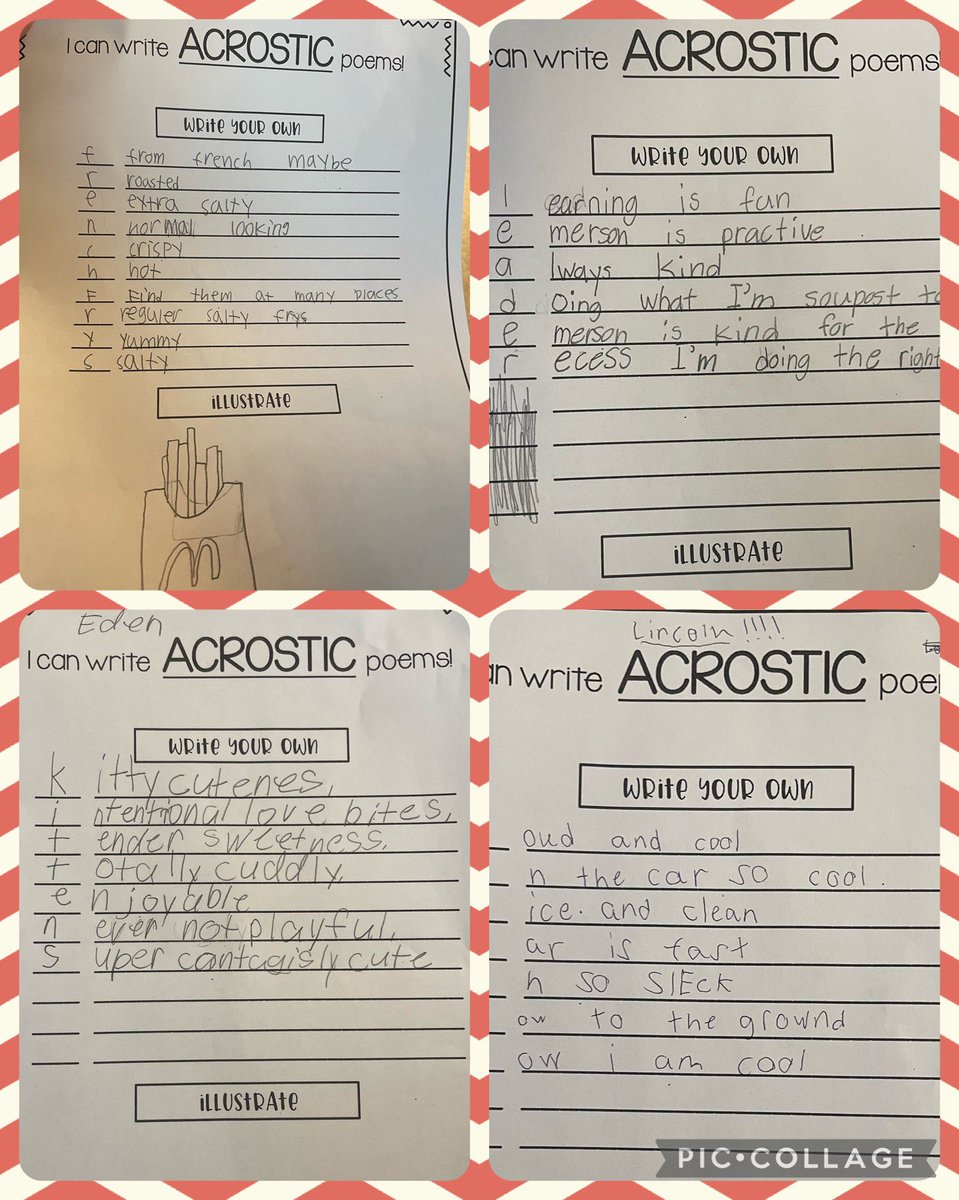 I can write ACROSTIC poems!
WRITE YOUR OWN
f from french maybe
r roasted
e extra salty
n normal looking
c crispy
h hot
F Find them at many places
r reguler salty frys
y yummy
s salty
ILLUSTRATE
can write ACROSTIC poems
WRITE YOUR OWN
l earning is fun
e merson is practive
a lways kind
d oing what I'm soupost to
e merson is kind for the
r ecess I'm doing the right
ILLUSTRATE
Eden
I can write ACROSTIC poems!
WRITE YOUR OWN
k itty cutenes,
i ntentional love bites,
t ender sweetness,
t otally cuddly,
e njoyable
n ever not playful,
s uper contagisly cute
ILLUSTRATE
Lincoln!!!!
an write ACROSTIC poe
WRITE YOUR OWN
oud and cool
n the car so cool.
ice. and clean
ar is fast
h so slEck
ow to the grownd
ow i am cool
PIC•COLLAGE